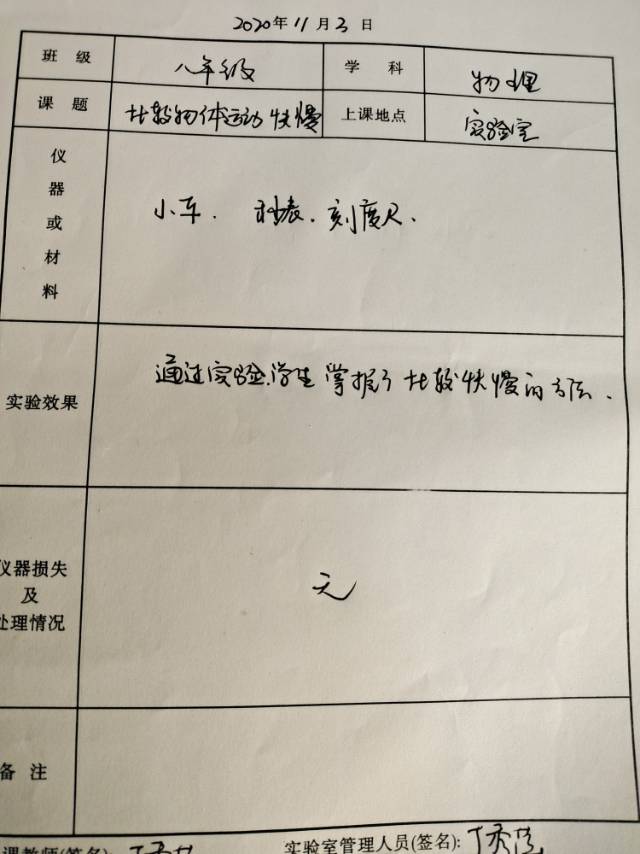 2020年11月3日
班 级 八年级 学 科 物理
课 题 比较物体运动快慢 上课地点 实验室
仪器或材料 小车. 秒表. 刻度尺.
实验效果 通过实验,学生掌握了比较快慢的方法.
仪器损失
及
处理情况 无
备 注
课教师(签名): 实验室管理人员(签名):